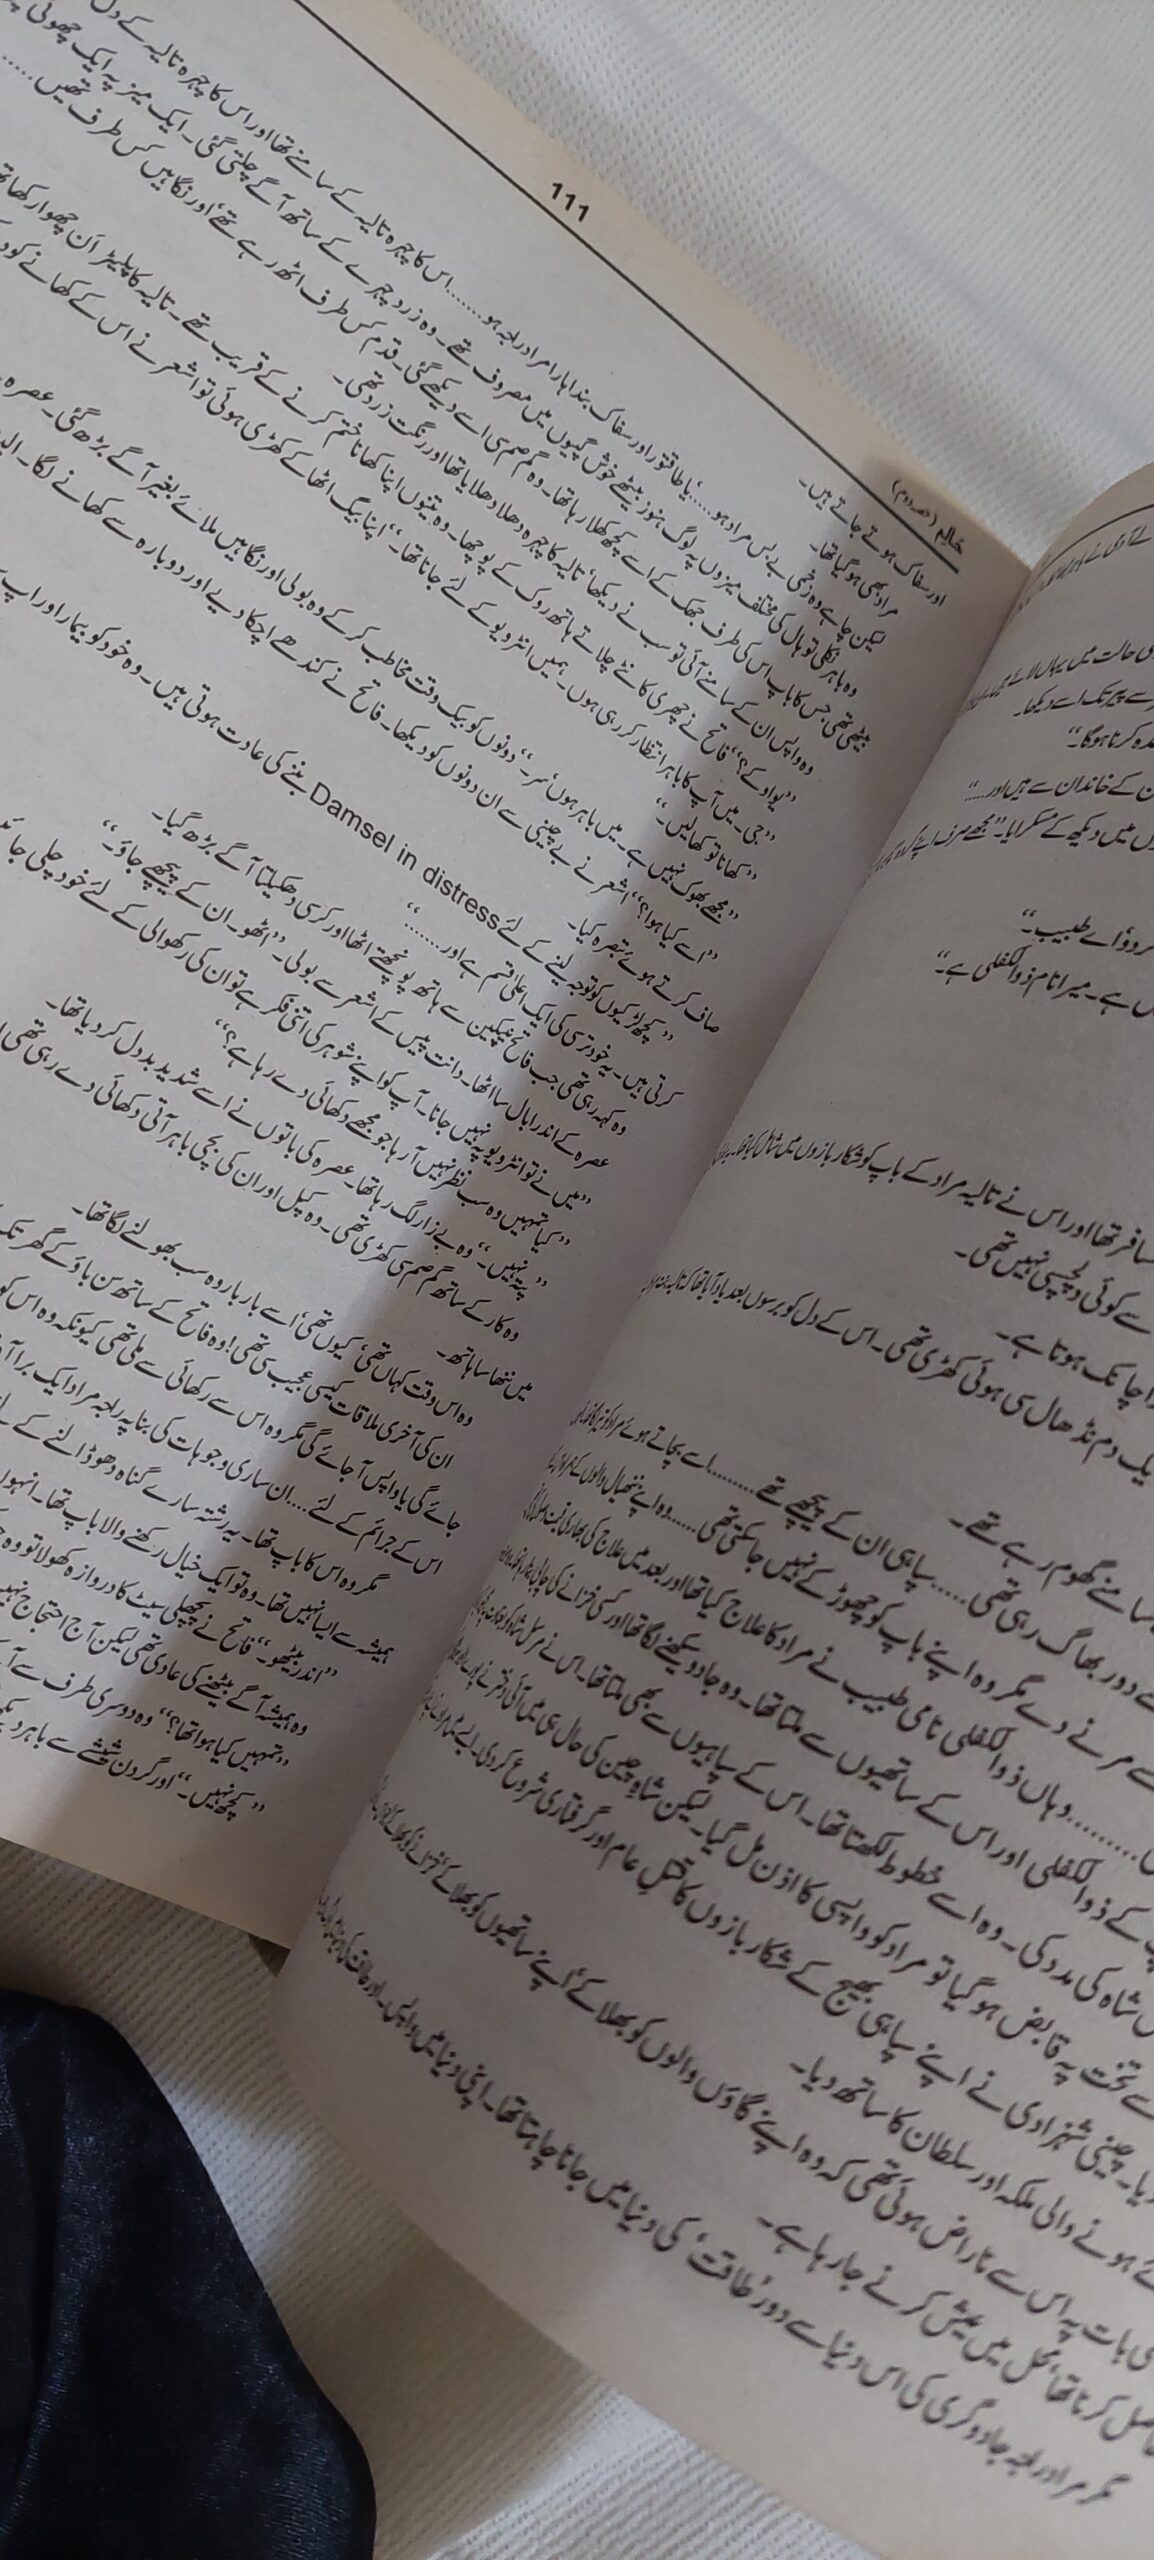 111
حالِم (حصہ دوم)
اور سفاک ہوتے جاتے ہیں۔
مراد بھی ہو گیا تھا۔
لیکن چاہے وہ زخمی بے بس مراد ہو.....یا طاقتور اور سفاک بنداہارا مراد راجہ ہو......اس کا چہرہ تالیہ کے سامنے تھا اور اس کا چہرہ تالیہ کے دل
وہ باہر نکلی تو ہال کی مختلف میزوں پہ لوگ ہنوز بیٹھے خوش گپیوں میں مصروف تھے۔ وہ زرد چہرے کے ساتھ آگے چلتی گئی۔ ایک میز پہ ایک چھوٹی
بیٹھی تھی جس کا باپ اس کی طرف جھک کے اسے کچھ کھلا رہا تھا۔ وہ گم صم سی اسے دیکھے گئی۔ قدم کس طرف اٹھ رہے تھے' اور نگاہیں کس طرف تھیں......
وہ واپس ان کے سامنے آئی تو سب نے دیکھا' تالیہ کا چہرہ دھلا دھلایا تھا اور رنگت زرد تھی۔
"یو اوکے؟" فاتح نے چھری کانٹے چلاتے ہاتھ روک کے پوچھا۔ وہ تینوں اپنا کھانا ختم کرنے کے قریب تھے۔ تالیہ کا پلیٹر ان چھوا رکھا تھا
"جی۔ میں آپ کا باہر انتظار کر رہی ہوں۔ ہمیں انٹرویو کے لئے جانا تھا۔" اپنا بیگ اٹھا کے کھڑی ہوئی تو اشعر نے اس کے کھانے کو
"کھانا تو کھا لیں۔"
"مجھے بھوک نہیں ہے۔ میں باہر ہوں' سر۔" دونوں کو بیک وقت مخاطب کر کے وہ بولی اور نگاہیں ملائے بغیر آگے بڑھ گئی۔ عصرہ
"اسے کیا ہوا؟" اشعر نے بے چینی سے ان دونوں کو دیکھا۔ فاتح نے کندھے اچکا دیے اور دوبارہ سے کھانے لگا۔
صاف کرتے ہوئے تبصرہ کیا۔
"کچھ لڑکیوں کو توجہ لینے کے لئے Damsel in distress بننے کی عادت ہوتی ہیں۔ وہ خود کو بیمار اور اپ
کرتی ہیں۔ یہ خود ترسی کی ایک اعلیٰ قسم ہے اور......."
وہ کہہ رہی تھی جب فاتح نیپکین سے ہاتھ پونچھتے اٹھا اور کرسی دھکیلتا آگے بڑھ گیا۔
عصرہ کے اندر ابال سا اٹھا۔ دانت پیس کے اشعر سے بولی۔ "اٹھو۔ ان کے پیچھے جاؤ۔"
"میں نے تو انٹرویو پہ نہیں جانا۔ آپ کو اپنے شوہر کی اتنی فکر ہے تو ان کی رکھوالی کے لئے خود چلی جا
"کیا تمہیں وہ سب نظر نہیں آ رہا جو مجھے دکھائی دے رہا ہے؟"
"پتہ نہیں۔" وہ بے زار لگ رہا تھا۔ عصرہ کی باتوں نے اسے شدید بددل کر دیا تھا۔
وہ کار کے ساتھ گم صم سی کھڑی تھی۔ وہ کپل اور ان کی بچی باہر آتی دکھائی دے رہی تھی
میں ننھا سا ہاتھ۔
وہ اس وقت کہاں تھی' کیوں تھی' اسے بار بار وہ سب بھولنے لگا تھا۔
ان کی آخری ملاقات کیسی عجیب سی تھی! وہ فاتح کے ساتھ سن باؤ کے گھر تک
جائے گی یا واپس آ جائے گی مگر وہ اس سے رکھائی سے ملی تھی کیونکہ وہ اس کو
اس کے جرائم کے لئے....ان ساری وجوہات کی بنا پہ راجہ مراد ایک برا
مگر وہ اس کا باپ تھا۔ یہ رشتہ سارے گناہ دھو ڈالنے کے
ہمیشہ سے ایسا نہیں تھا۔ وہ تو ایک خیال رکھنے والا باپ تھا۔ انہوں
"اندر بیٹھو۔" فاتح نے پچھلی سیٹ کا دروازہ کھولا تو وہ
وہ ہمیشہ آگے بیٹھنے کی عادی تھی لیکن آج احتجاج نہیں
"تمہیں کیا ہوا تھا؟" وہ دوسری طرف سے
"کچھ نہیں۔" اور گردن شیشے سے باہر
حالت میں یہاں لائے
سے پیر تک اسے دیکھا۔
کرنا ہوگا۔"
کے خاندان سے ہیں اور....."
میں دیکھ کے مسکرایا۔ "مجھے صرف اپنے
اے طبیب۔"
ہے۔ میرا نام ذوالکفلی ہے۔"
تھا اور اس نے تالیہ مراد کے باپ کو شکار بازوں میں شامل کیا تھا۔
سے کوئی دلچسپی نہیں تھی۔
اچانک ہوتا ہے۔
یک دم نڈھال سی ہوئی کھڑی تھی۔ اس کے دل کو برسوں بعد یاد آیا تھا کہ تالیہ
سامنے گھوم رہے تھے۔
دور بھاگ رہی تھی.....سپاہی ان کے پیچھے تھے.......اسے بچاتے ہوئے مراد
مرنے دے مگر وہ اپنے باپ کو چھوڑ کے نہیں جا سکتی تھی......وہ اپنے ننھیال والوں کے
........وہاں ذوالکفلی نامی طبیب نے مراد کا علاج کیا تھا اور بعد میں علاج کی بھاری قیمت
کے ذوالکفلی اور اس کے ساتھیوں سے ملتا تھا۔ وہ جادو سیکھنے لگا تھا اور کسی خزانے کی چابی
شاہ کی مدد کی۔ وہ اسے خطوط لکھتا تھا۔ اس کے سپاہیوں سے بھی ملتا تھا۔ اس نے مرسل شاہ کو
تخت پہ قابض ہو گیا تو مراد کو واپسی کا اذن مل گیا۔ لیکن شاہِ چین کی حال ہی میں آئی دختر نے
چینی شہزادی نے اپنے سپاہی بھیج کے شکار بازوں کا قتلِ عام اور گرفتاری شروع کر دی۔ ایسے میں
ہونے والی ملکہ اور سلطان کا ساتھ دیا۔
بات پہ اس سے ناراض ہوئی تھی کہ وہ اپنے گاؤں والوں کو بھلا کے' اپنے ساتھیوں کو بھلا کے'
کرنا تھا' محل میں عیش کرنے جا رہا ہے۔
مگر مراد راجہ جادوگری کی اس دنیا سے دور 'طاقت' کی دنیا میں جانا چاہتا تھا۔ اپنی دنیا میں واپس۔ اور طاقت